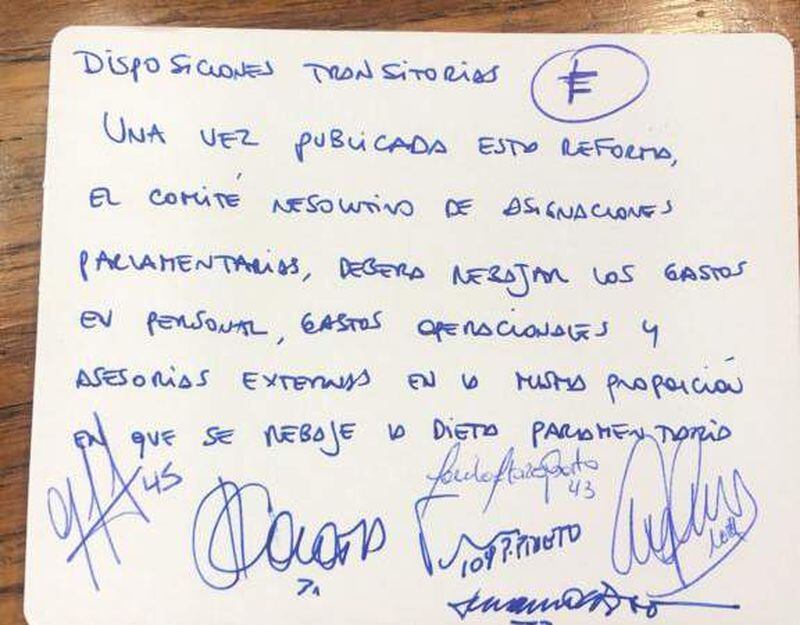 DISPOSICIONES TRANSITORIAS
E
UNA VEZ PUBLICADA ESTA REFORMA,
EL COMITÉ RESOLUTIVO DE ASIGNACIONES
PARLAMENTARIAS, DEBERA REBAJAR LOS GASTOS
EN PERSONAL, GASTOS OPERACIONALES Y
ASESORIAS EXTERNAS EN LA MISMA PROPORCIÓN
EN QUE SE REBAJE LA DIETA PARLAMENTARIA
45
43
71
109 P. PRIETO